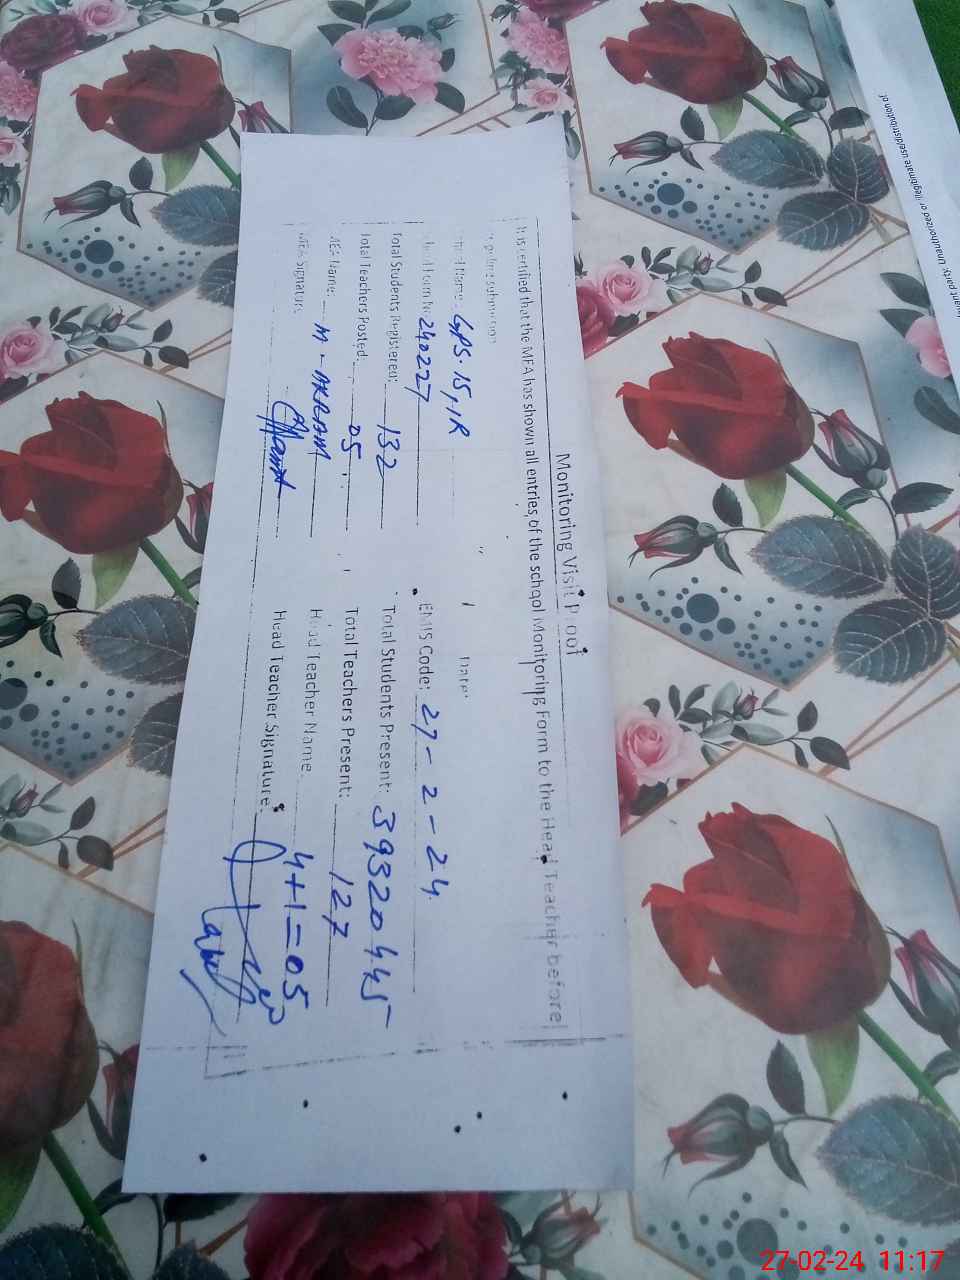 Monitoring Visit Proof
It is certified that the MEA has shown all entries, of the school Monitoring Form to the Head Teacher before
submission
Name: GPS. 15/1R Date:
Form No 240227 EMIS Code: 27-2-24
Total Students Registered: 132 Total Students Present: 39320445
Total Teachers Posted: 05 Total Teachers Present: 127
MEA Name: M-AKRAM Head Teacher Name: 4+1=05
MEA Signature Head Teacher Signature:
party. Unauthorized or illegitimate use/distribution of
27-02-24 11:17